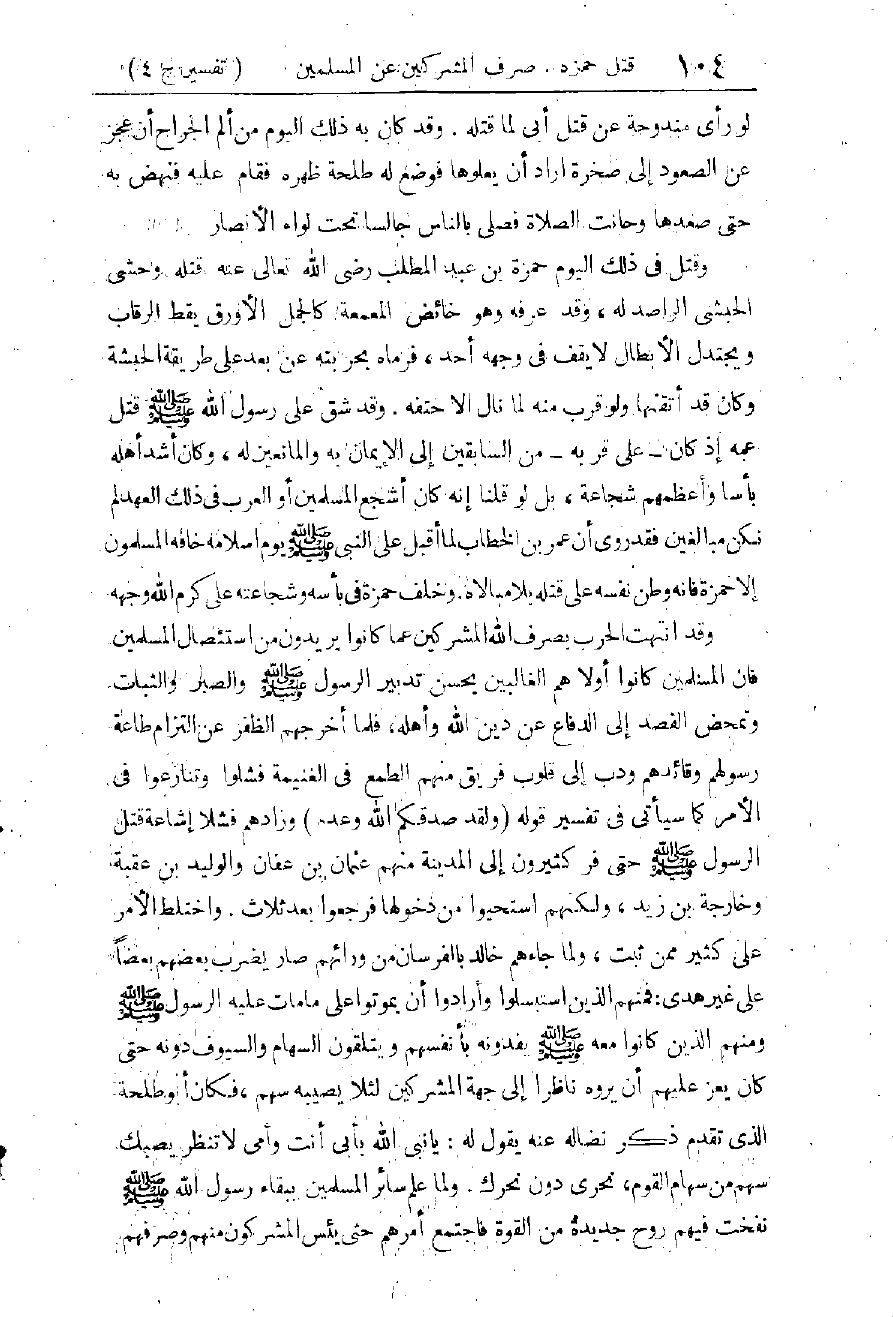 ١٠٤ قتل حمزة . صرف المشركين عن المسلمين ( تفسير ج ٤ )
لو رأى مندوحة عن قتل أبى لما قتله . وقد كان به ذلك اليوم من ألم الجراح أن عجز
عن الصعود إلى صخرة اراد أن يعلوها فوضع له طلحة ظهره فقام عليه فنهض به
حتى صعدها وحانت الصلاة فصلى بالناس جالسا تحت لواء الأنصار
وقتل فى ذلك اليوم حمزة بن عبد المطلب رضى الله تعالى عنه قتله وحشى
الحبشى الراصد له ، وقد عرفه وهو خائض المعمعة كالجمل الأورق يقط الرقاب
ويجتدل الأبطال لا يقف فى وجهه أحد ، فرماه بحربته عن بعد على طريقة الحبشة
وكان قد أتقنها ولو قرب منه لما نال الا حتفه . وقد شق على رسول الله ﷺ قتل
عمه إذ كان ـ على قربه ـ من السابقين إلى الإيمان به والمانعين له ، وكان أشد أهله
بأسا وأعظمهم شجاعة ، بل لو قلنا إنه كان أشجع المسلمين أو العرب فى ذلك العهد لم
نكن مبالغين فقد روى أن عمر بن الخطاب لما أقبل على النبى ﷺ يوم اسلامه خافه المسلمون
إلا حمزة فانه وطن نفسه على قتله بلا مبالاة . وخلف حمزة فى بأسه وشجاعته على كرم الله وجهه
وقد انتهت الحرب بصرف الله المشركين عما كانوا يريدون من استئصال المسلمين
فان المسلمين كانوا أولا هم الغالبين بحسن تدبير الرسول ﷺ والصبر والثبات
وتمحض القصد إلى الدفاع عن دين الله وأهله ، فلما أخرجهم الظفر عن التزام طاعة
رسولهم وقائدهم ودب إلى قلوب فريق منهم الطمع فى الغنيمة فشلوا وتنازعوا فى
الأمر كما سيأتى فى تفسير قوله ( ولقد صدقكم الله وعده ) وزادهم فشلا إشاعة قتل
الرسول ﷺ حتى فر كثيرون إلى المدينة منهم عثمان بن عفان والوليد بن عقبة
وخارجة بن زيد ، ولكنهم استحيوا من دخولها فرجعوا بعد ثلاث . واختلط الأمر
على كثير ممن ثبت ، ولما جاءهم خالد بالفرسان من ورائهم صار يضرب بعضهم بعضاً
على غير هدى : فمنهم الذين استبسلوا وأرادوا أن يموتوا على مامات عليه الرسول ﷺ
ومنهم الذين كانوا معه ﷺ يفدونه بأنفسهم ويتلقون السهام والسيوف دونه حتى
كان يعز عليهم أن يروه ناظرا إلى جهة المشركين لئلا يصيبه سهم ، فكان أبو طلحة
الذى تقدم ذكر نضاله عنه يقول له : يانبى الله بأبى أنت وأمى لا تنظر يصبك
سهم من سهام القوم ، نحرى دون نحرك . ولما علم سائر المسلمين ببقاء رسول الله ﷺ
نفخت فيهم روح جديدة من القوة فاجتمع أمرهم حتى يئس المشركون منهم وصرفهم